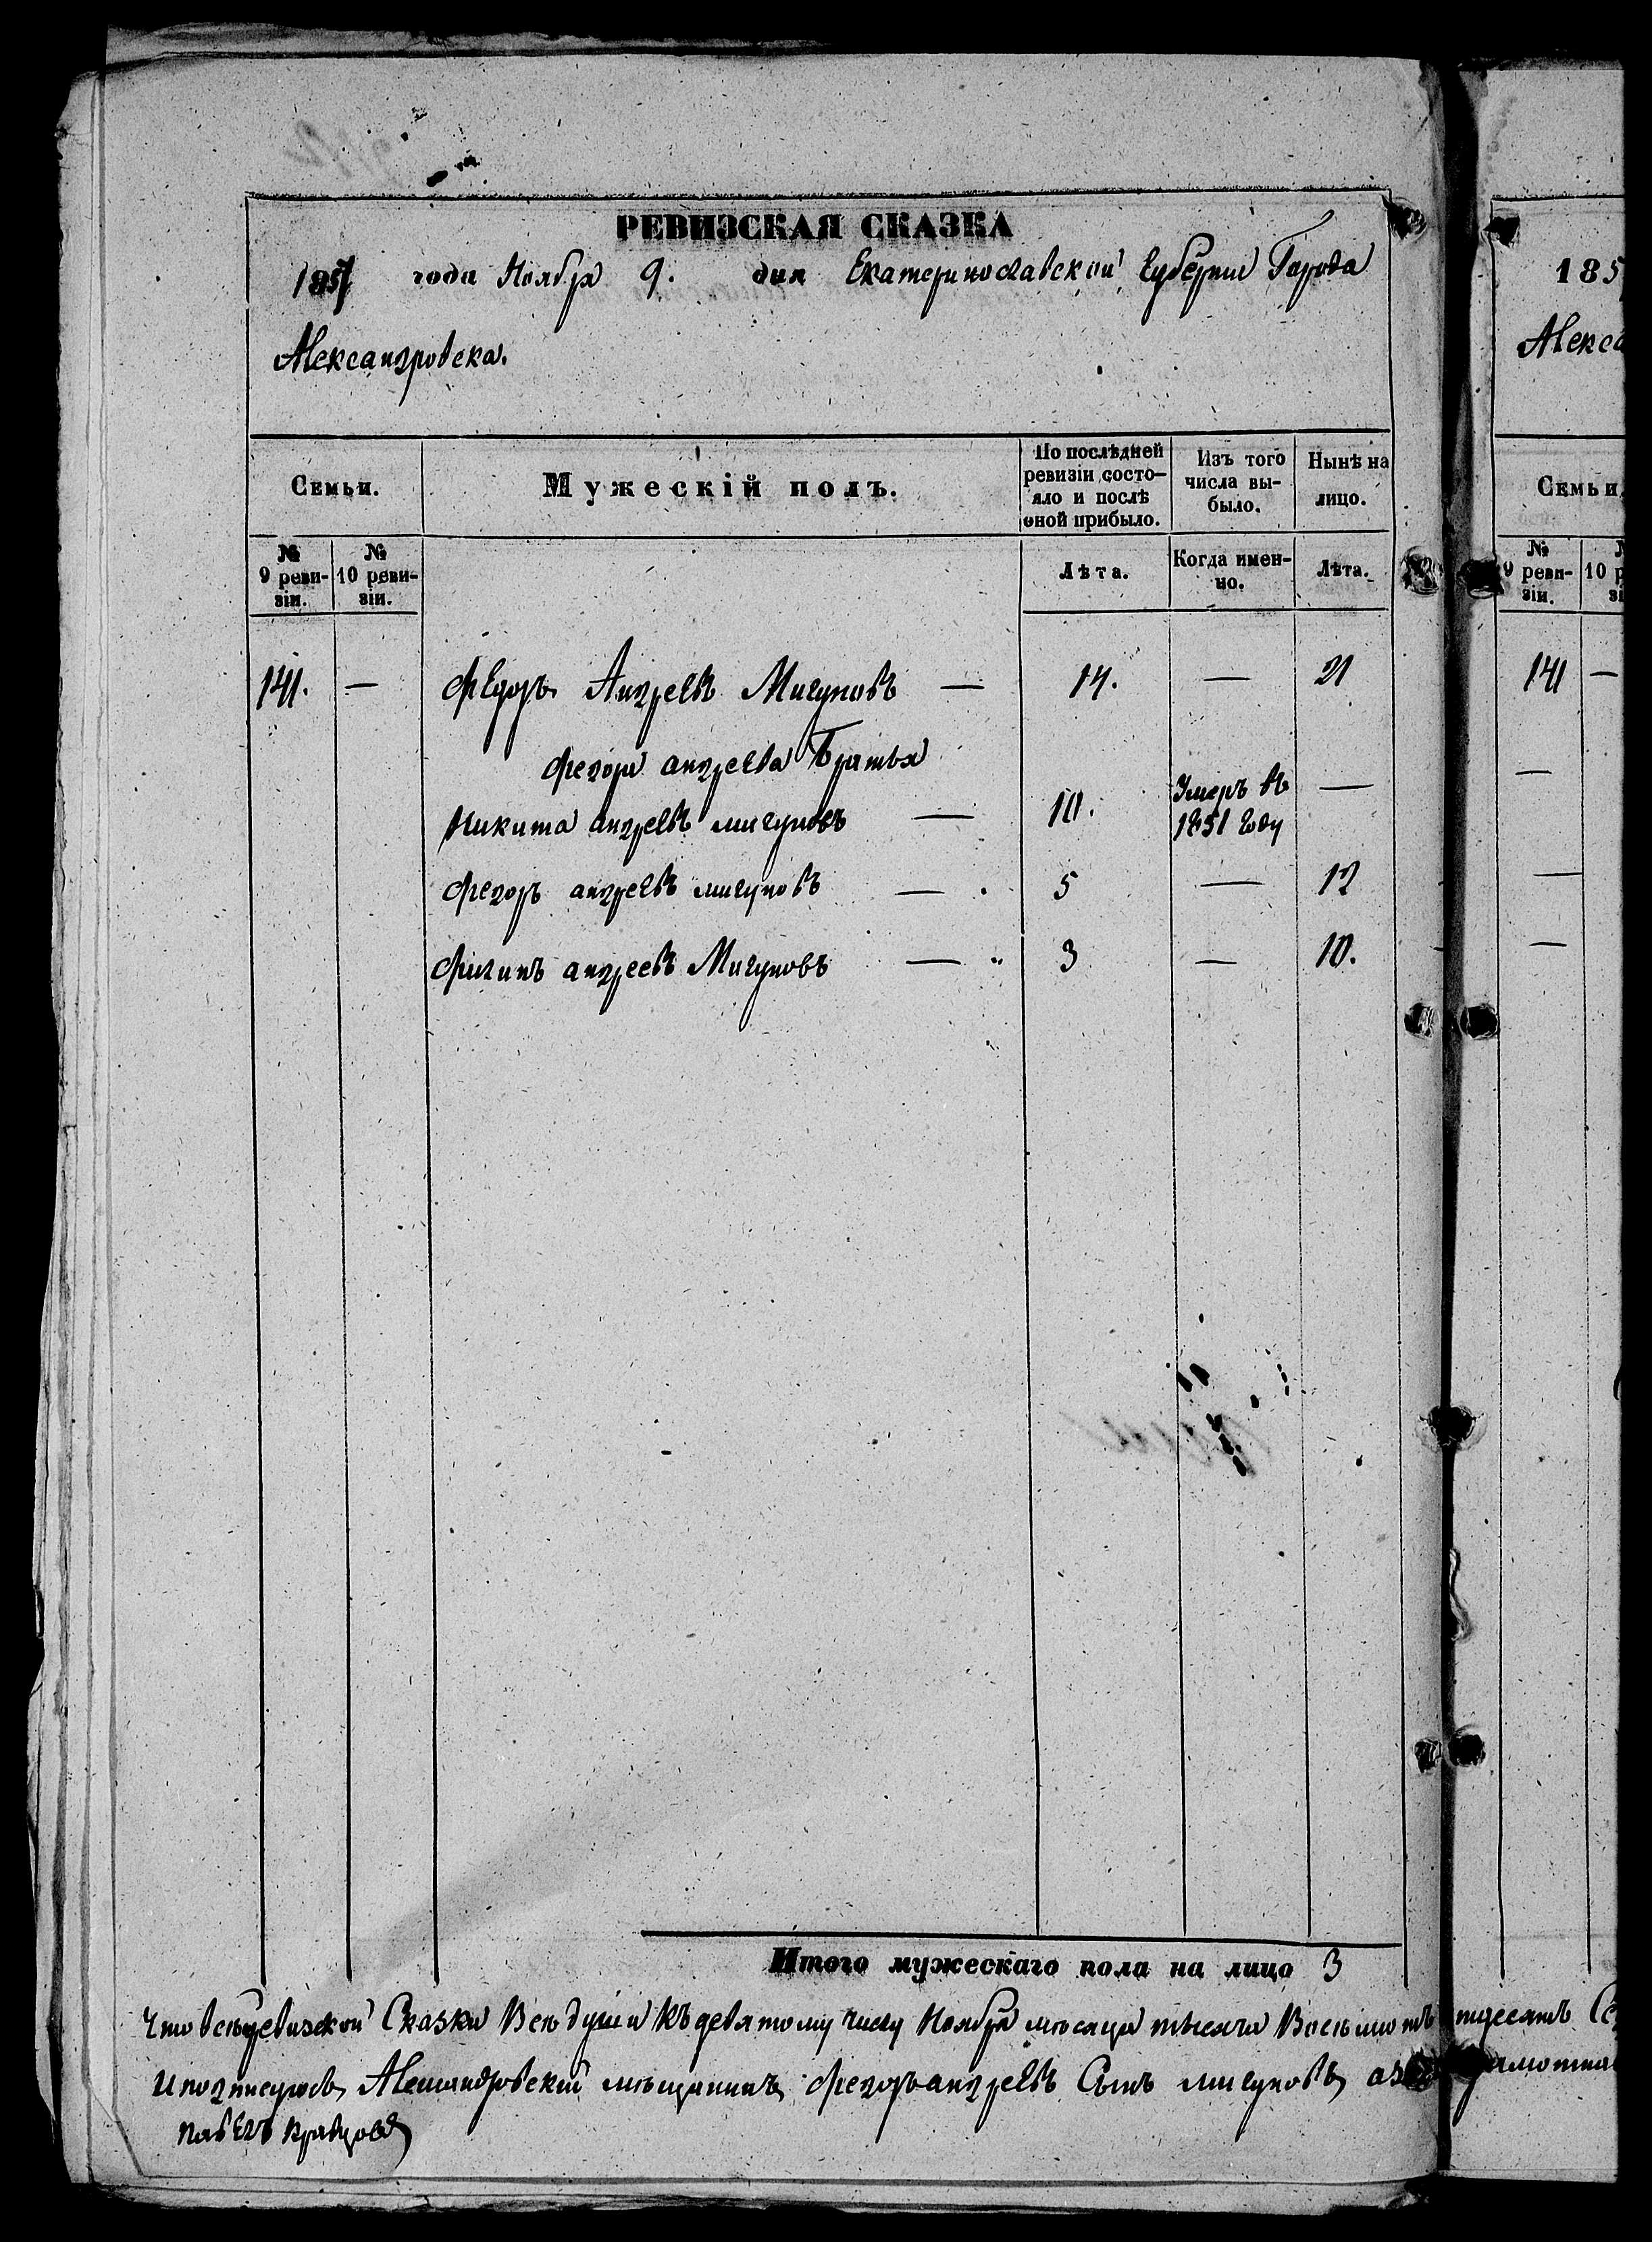 РЕВИЗСКАЯ СКАЗКА
1857 года Ноября 9. дня Екатеринославской Губернии Города
Александровска.
Семьи.
Мужескій полъ.
По послѣдней ревизіи состо-яло и послѣ оной прибыло.
Изъ того числа вы-было.
Нынѣ на лицо.
№ 9 реви-зіи.
№ 10 реви-зіи.
Лѣта.
Когда имен-но.
Лѣта.
141. — Федоръ Андреевъ Мигуновъ — 14. — 21
Федора андреева Братья
Никита андреевъ мигуновъ — 10. Умеръ въ 1851 году —
Федоръ андреевъ мигуновъ — 5 — 12
андреевъ Мигуновъ — 3 — 10.
Итого мужескаго пола на лицо 3
Что всей ревизской Сказки Всѣ души къ девятому числу Ноября мѣсяца тысяча Восемьсотъ
и подписуюсь Александровскій мѣщанинъ федоръ андреевъ Сынъ мигуновъ
Павелъ Кравцовъ
185
Алекса
Семьи
№ 9 реви-зіи.
141 —